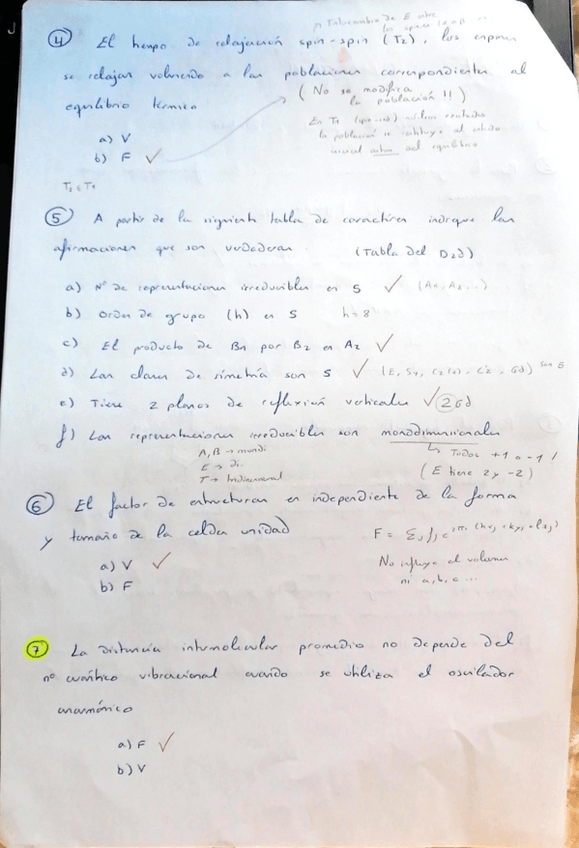 ④ El tiempo de relajación spin-spin (T₂), los espines
se relajan volviendo a las poblaciones correspondientes al
equilibrio térmico
(No se modifica
la población !!)
a) V
b) F ✓
En T₁
la población se restituye al estado
inicial del equilibrio
⑤ A partir de la siguiente tabla de caracteres indique las
afirmaciones que son verdaderas (Tabla del D₂d)
a) Nº de representaciones irreducibles es 5 ✓ (A₁, A₂...)
b) Orden de grupo (h) es 5 h = 8
c) El producto de B₁ por B₂ es A₂ ✓
d) Las clases de simetría son 5 ✓ (E, S₄, C₂(z), C₂', σd) son 5
e) Tiene 2 planos de reflexión verticales ✓ 2σd
f) Las representaciones irreducibles son monodimensionales
A, B → mondi
E → di.
T → tridimensional
↳ Todos +1 o -1 !
(E tiene 2 y -2)
⑥ El factor de estructuras es independiente de la forma
y tamaño de la celda unidad
F = Σj fj e^2πi (hxj + kyj + lzj)
a) V ✓
b) F
No influye el volumen
ni a, b, c ...
⑦ La distancia intermolecular promedio no depende del
nº cuántico vibracional cuando se utiliza el oscilador
anarmónico
a) F ✓
b) V